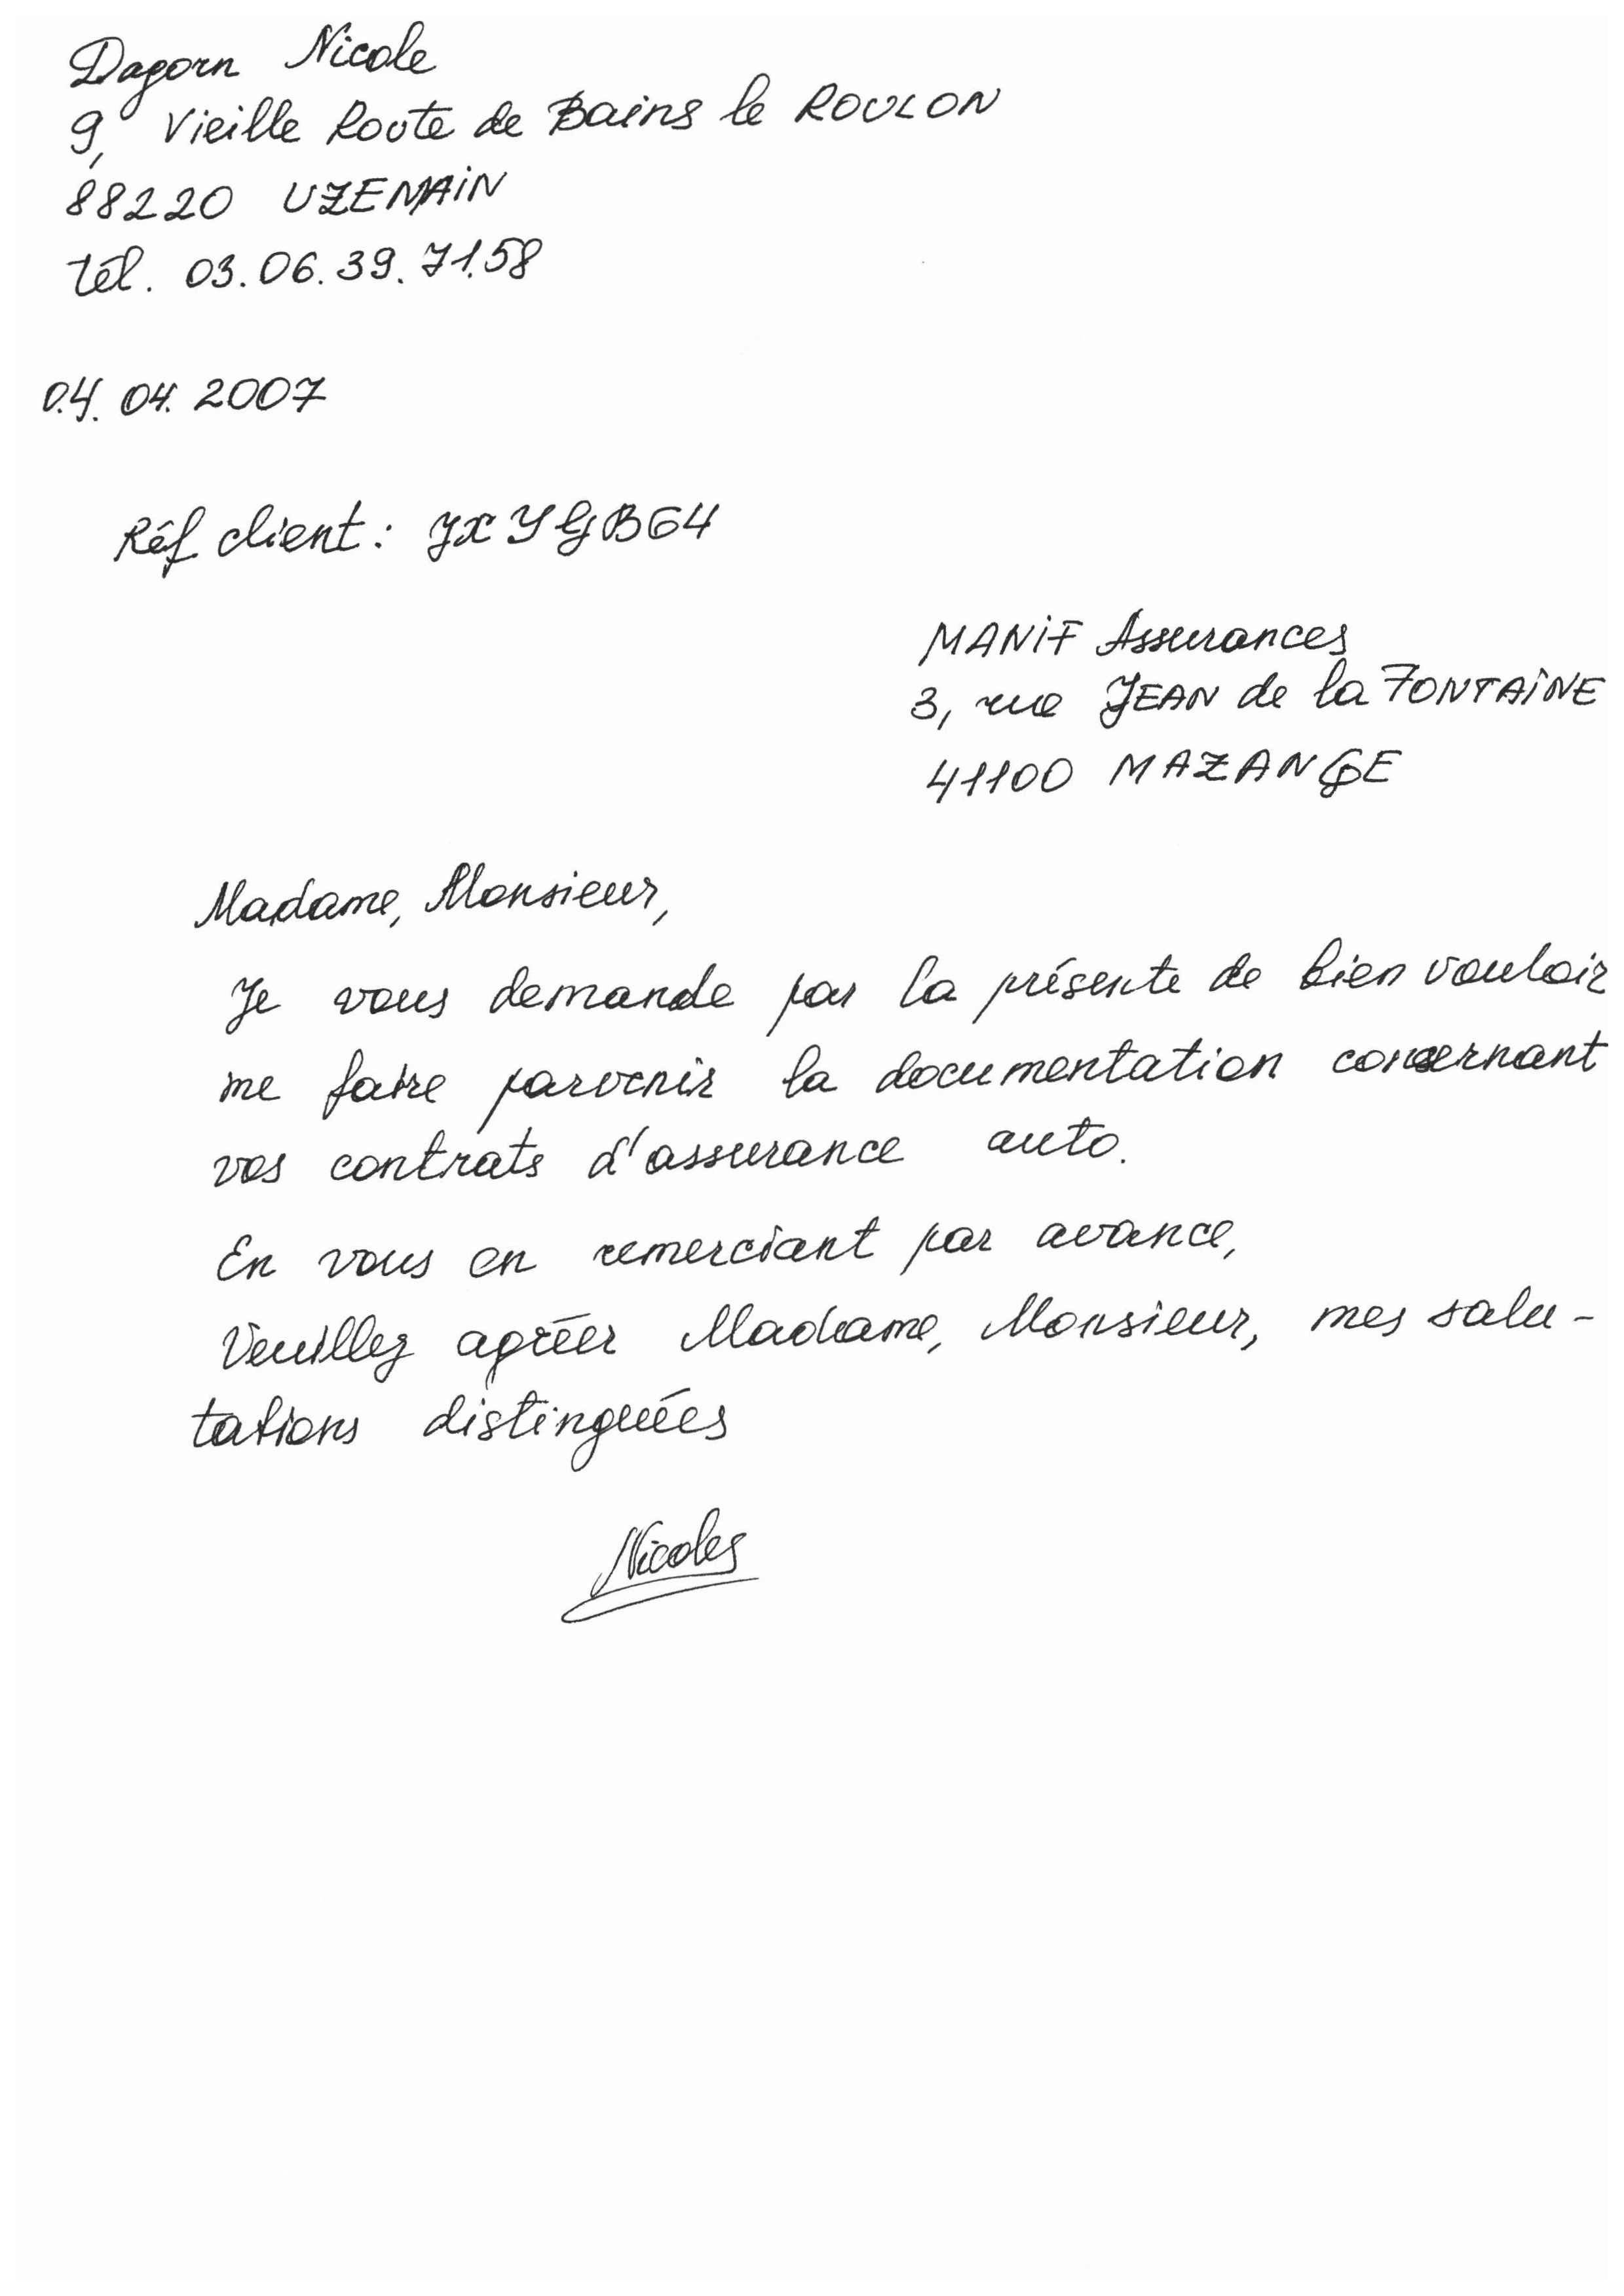 Dagorn Nicole
9, Vieille Route de Bains le ROULON
88220 UZEMAIN
tél. 03.06.39.71.58
04.04.2007
Réf client : JXYGB64
MANIF Assurances
3, rue JEAN de la FONTAINE
41100 MAZANGE
Madame, Monsieur,
Je vous demande par la présente de bien vouloir
me faire parvenir la documentation concernant
vos contrats d'assurance auto.
En vous en remerciant par avance,
Veuillez agréer Madame, Monsieur, mes salu-
tations distinguées
Nicoles